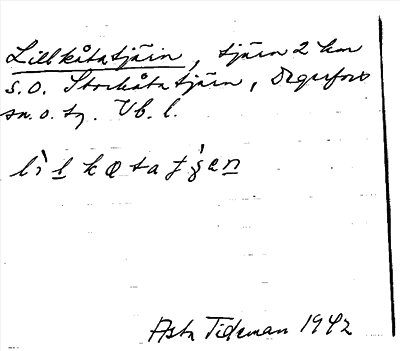 Lillkåtatjärn, tjärn 2 km
s.o. Storkåtatjärn, Degerfors
sn. o. tg. Vb. l.
Asta Tideman 1942